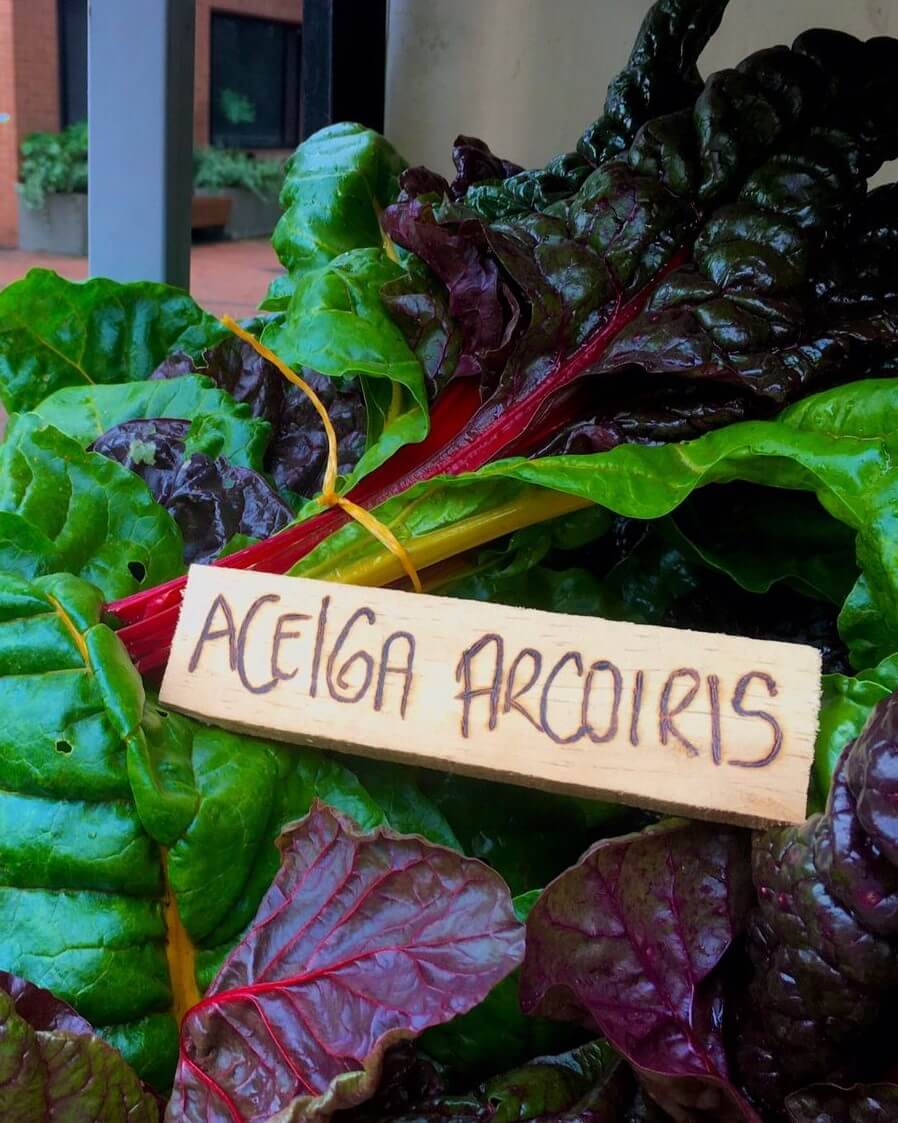 ACElGA ARCOIRIS